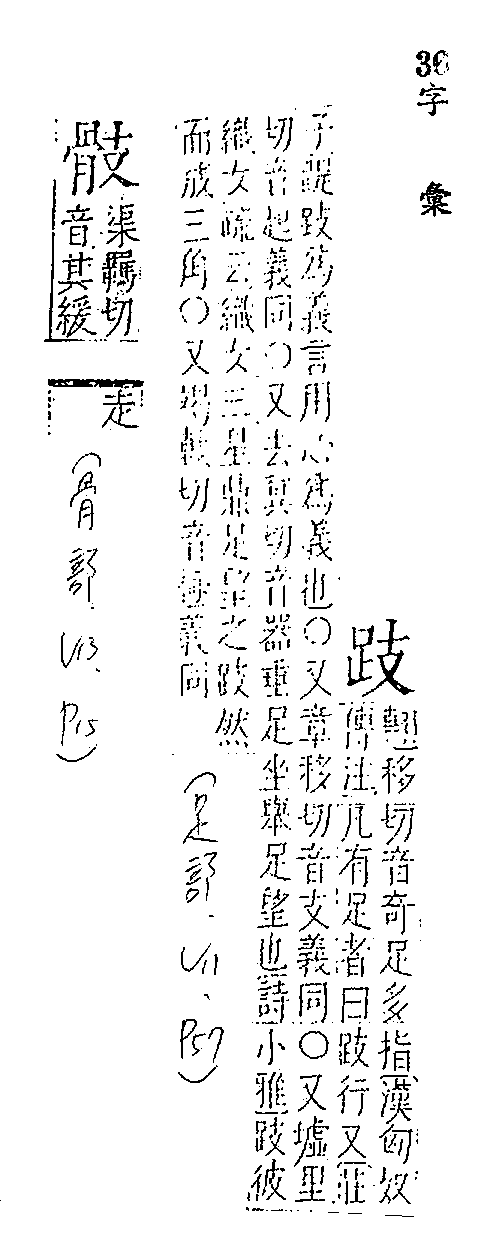 36
字 彙
跂
翹移切音奇足多指漢匈奴
傳注凡有足者曰跂行又莊
子踶跂為義言用心為義也○又章移切音支義同○又墟里
切音起義同○又去冀切音器垂足坐舉足望也詩小雅跂彼
織女疏云織女三星鼎足望之跂然
而成三角○又切音義同
(足部.V11、P57)
䯆
渠羈切
音其緩
走
(骨部.V13、P15)